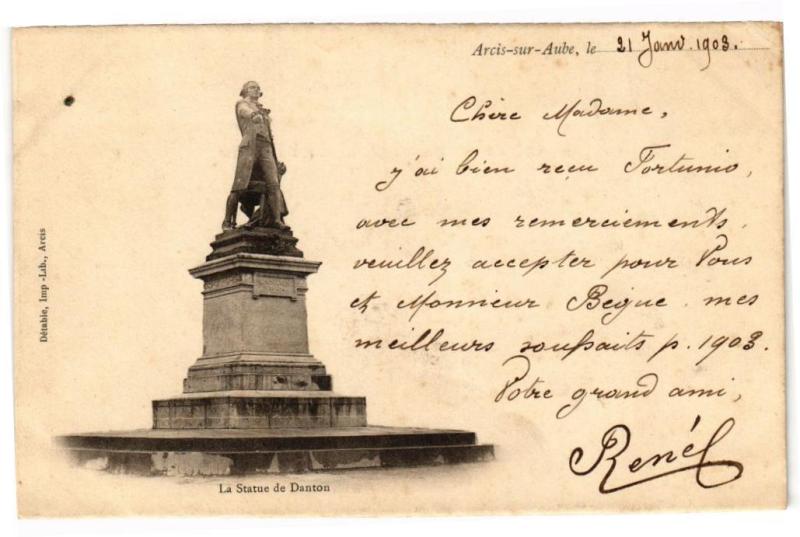 Arcis-sur-Aube, le 21 Janv. 1903.
Chère Madame,
j'ai bien reçu Fortunio,
avec mes remerciements,
veuillez accepter pour Vous
et Monsieur Bègue mes
meilleurs souhaits p. 1903.
Votre grand ami,
René
La Statue de Danton
Détable, Imp.-Lib., Arcis